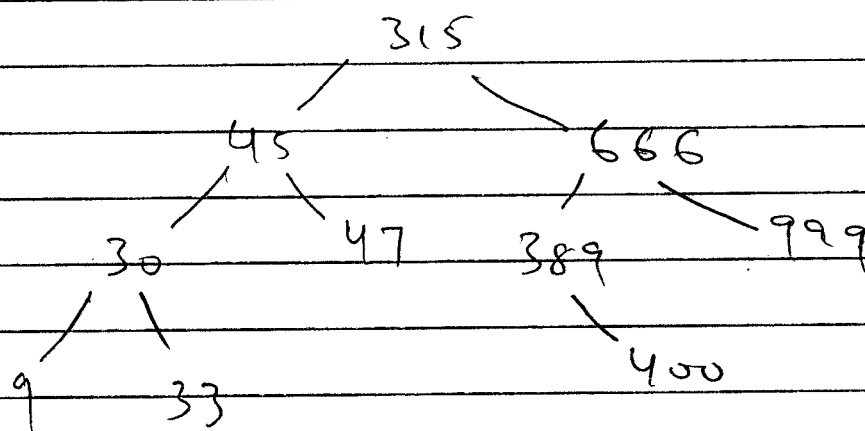 315
45 666
30 47 389 999
9 33 400